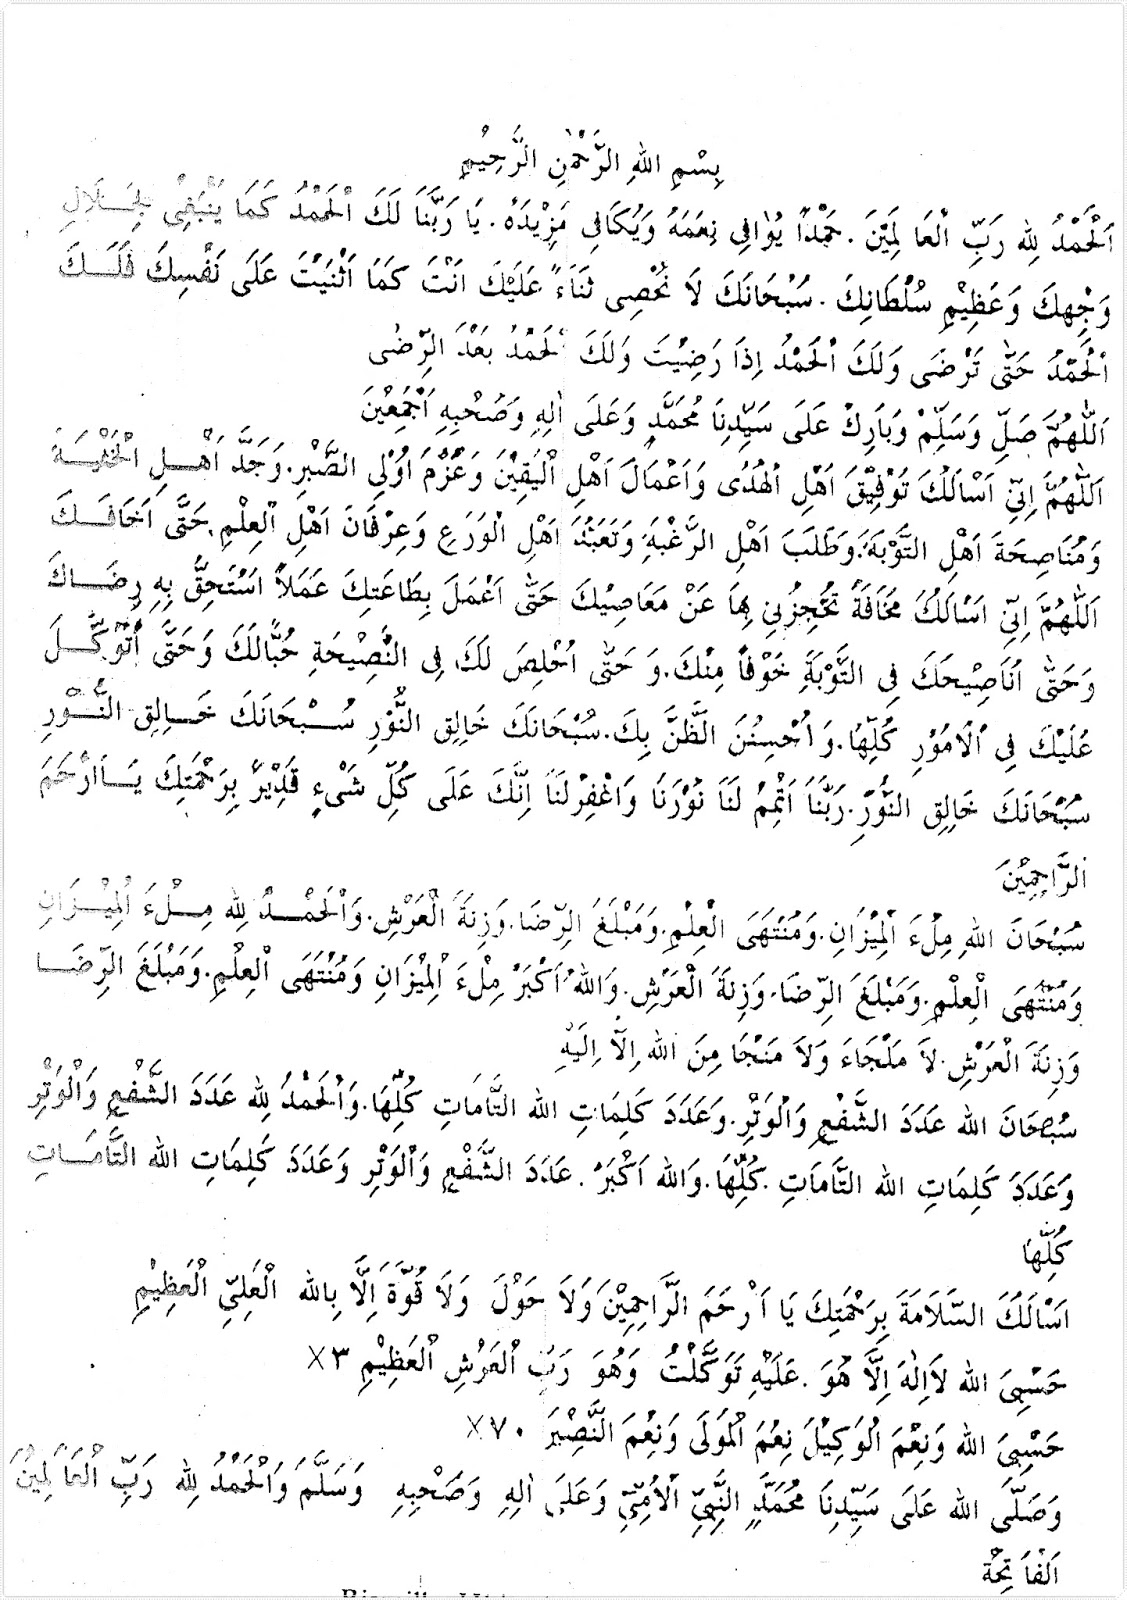 بِسْمِ اللهِ الرَّحْمٰنِ الرَّحِيْمِ
اَلْحَمْدُ لِلهِ رَبِّ الْعَا لَمِيْنَ . حَمْدًا يُوٰافِى نِعَمَهُ وَيُكَافِى مَزِيْدَهُ . يَا رَبَّنَا لَكَ الْحَمْدُ كَمَا يَنْبَغِىْ لِجَـــلَالِ
وَجْهِكَ وَعَظِيْمِ سُلْطَانِكَ . سُبْحَانَكَ لَا نُحْصِى ثَنَاءً عَلَيْكَ اَنْتَ كَمَا اَثْنَيْتَ عَلَى نَفْسِكَ فَلَــكَ
الْحَمْدُ حَتَّى تَرْضَى وَلَكَ الْحَمْدُ اِذَا رَضِيْتَ وَلَكَ الْحَمْدُ بَعْدَ الرِّضٰى
اَللّٰهُمَّ صَلِّ وَسَلِّمْ وَبَارِكْ عَلَى سَيِّدِنَا مُحَمَّدٍ وَعَلَى اٰلِهِ وَصَحْبِهِ اَجْمَعِيْنَ
اَللّٰهُمَّ اِنِّىْ اَسْاَلُكَ تَوْفِيْقَ اَهْلِ الْهُدٰى وَاَعْمَالَ اَهْلِ الْيَقِيْنَ وَعَزْمَ اُوْلِى الصَّبْرِ. وَجَدَّ اَهْــلِ الْخَشْيَــةَ
وَمُنَاصِحَةَ اَهْلِ التَّوْبَةَ. وَطَلَبَ اَهْلِ الرَّغْبَةِ وَتَعَبُّدَ اَهْلِ الْوَرَعِ وَعِرْفَانَ اَهْلِ الْعِلْمِ. حَتَّى اَخَافَــكَ
اَللّٰهُمَّ اِنِّىْ اَسْاَلُكَ مَخَافَةً تَحْجِزُنِىْ بِهَا عَنْ مَعَاصِيْكَ حَتَّى اَعْمَلَ بِطَاعَتِكَ عَمَلًا اَسْتَحِقُّ بِهِ رِضَــاكَ
وَحَتَّى اُنَاصِيْحَكَ فِى التَّوْبَةِ خَوْفًا مِنْكَ. وَ حَتَّى اُخْلِصَ لَكَ فِى النَّصِيْحَةِ حُبًّالَكَ وَحَتَّى اَتَوَكَّــلَ
عَلَيْكَ فِى الْاُمُوْرِ كُلِّهَا. وَ اُحْسِنُنَ الظَّنَّ بِكَ. سُبْحَانَكَ خَالِقِ النُّوْرِ سُــبْحَانَكَ خَــالِقِ النُّــوْرِ
سُبْحَانَكَ خَالِقِ النُّوْرِ. رَبَّنَا اَتْمِمْ لَنَا نُوْرَنَا وَاغْفِرْلَنَا اِنَّكَ عَلَى كُلِّ شَىْءٍ قَدِيْرٌ بِرَحْمَتِكَ يَــااَرْحَمَ
الرَّاحِمِيْنَ
سُبْحَانَ اللهِ مِلْءَ الْمِيْزَانِ. وَمُنْتَهَى الْعِلْمِ. وَمَبْلَغَ الرِّضَا. وَزِنَةَ الْعَرْشِ. وَالْحَمْــدُ لِلهِ مِــلْءَ الْمِيْــزَانِ
وَمُنْتَهَى الْعِلْمِ. وَمَبْلَغَ الرِّضَا. وَزِنَةَ الْعَرْشِ. وَاللهُ اَكْبَرُ مِلْءَ الْمِيْزَانِ وَمُنْتَهَى الْعِلْمِ. وَمَبْلَغَ الرِّضَــا
وَزِنَةَ الْعَرْشِ. لاَ مَلْجَاءَ وَلاَ مَنْجَا مِنَ اللهِ اِلاَّ اِلَيْهِ
سُبْحَانَ الله عَدَدَ الشَّفْعِ وَالْوَتْرِ. وَعَدَدَ كَلِمَاتِ الله التَّامَاتِ كُلِّهَا. وَالْحَمْدُ لِلهِ عَدَدَ الشَّفْعِ وَالْوَتْرِ
وَعَدَدَ كَلِمَاتِ الله التَّامَاتِ. كُلِّهَا. وَالله اَكْبَرُ . عَدَدَ الشَّفْعِ وَالْوَتْرِ وَعَدَدَ كَلِمَاتِ الله التَّامَــاتِ
كُلِّهَا
اَسْاَلُكَ السَّلَامَةَ بِرَحْمَتِكَ يَا اَرْحَمَ الرَّاحِمِيْنَ وَلَا حَوْلَ وَلَا قُوَّةَ اِلَّا بِالله الْعَلِيِّ الْعَظِيْمِ
حَسْبِىَ الله لاَاِلٰهَ اِلَّا هُوَ . عَلَيْهِ تَوَكَّلْتُ وَهُوَ رَبُّ الْعَرْشِ الْعَظِيْمِ ٣×
حَسْبِىَ الله وَنِعْمَ الْوَكِيْلَ نِعْمَ الْمَوْلَى وَنِعْمَ النَّصِيْرَ ٧٠×
وَصَلَّى الله عَلَى سَيِّدِنَا مُحَمَّدٍ النَّبِيِّ الْأُمِّيِّ وَعَلَى اٰلِهِ وَصَحْبِهِ وَسَلَّمَ وَالْحَمْدُ لِلهِ رَبِّ الْعَا لَمِيْنَ
اَلْفَا تِحَة